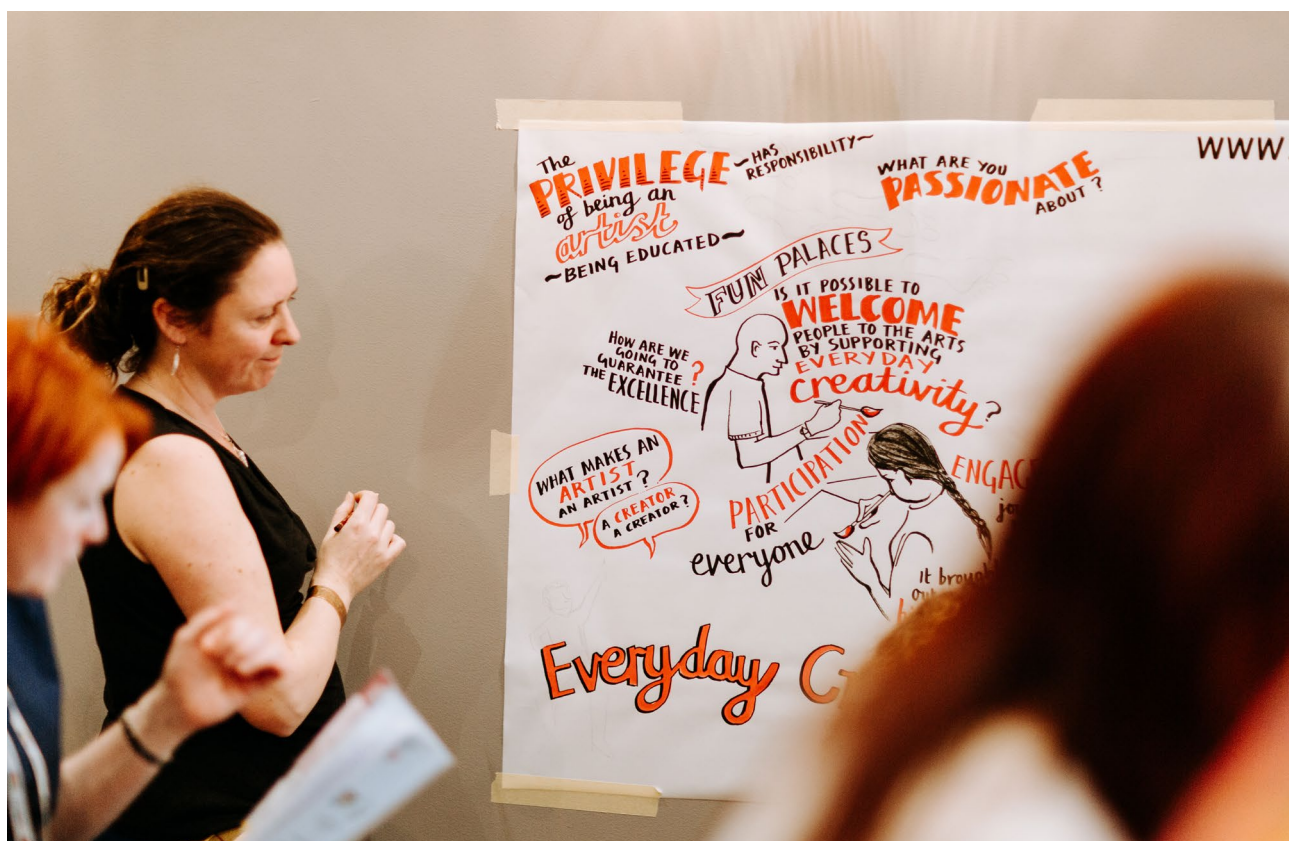 The
PRIVILEGE
of being an
artist
~BEING EDUCATED~
~HAS
RESPONSIBILITY~
WHAT ARE YOU
PASSIONATE
ABOUT?
WWW.
FUN PALACES
IS IT POSSIBLE TO
WELCOME
PEOPLE TO THE ARTS
BY SUPPORTING
EVERYDAY
creativity?
HOW ARE WE
GOING TO
GUARANTEE ?
THE EXCELLENCE
WHAT MAKES AN
ARTIST
AN ARTIST?
A CREATOR
A CREATOR?
PARTICIPATION
FOR
everyone
It
Everyday